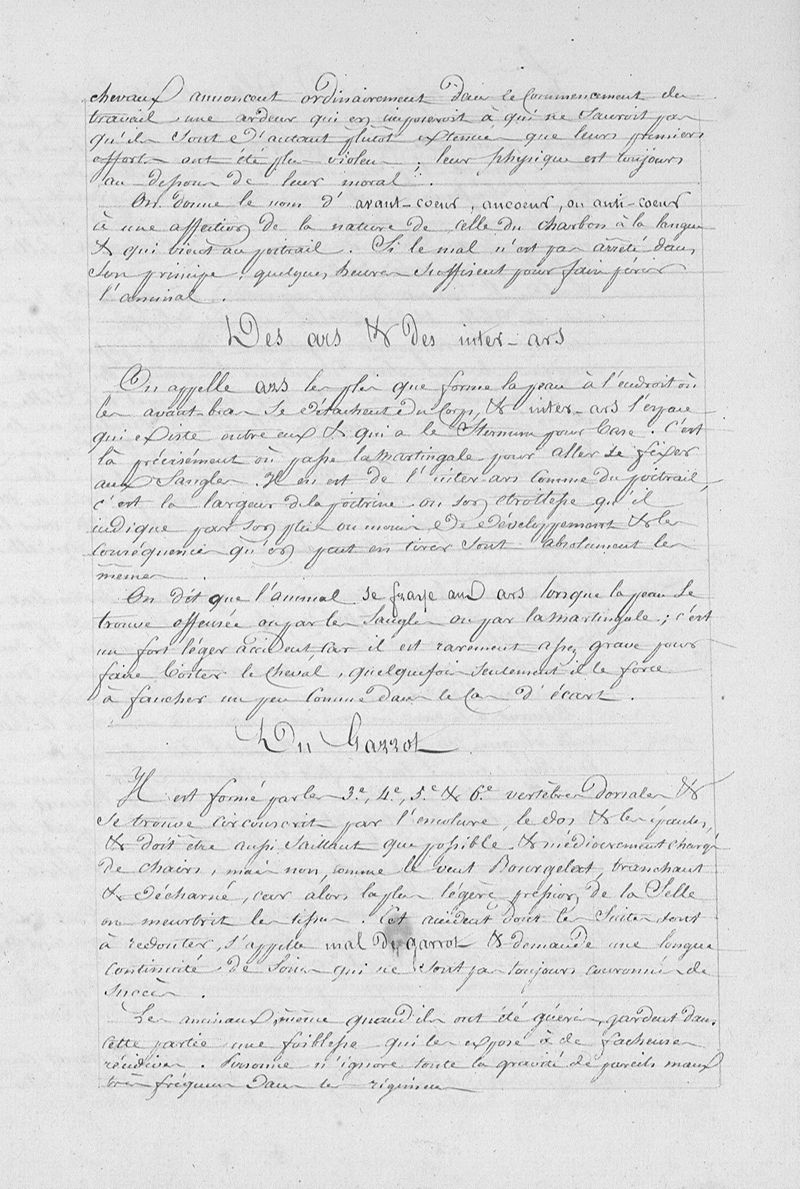 chevaux annoncent ordinairement dans le commencement du
travail une ardeur qui en imposeroit à qui ne sauroit pas
qu'ils sont d'autant plutôt exténués que leurs premiers
efforts ont été plus violens ; leur physique est toujours
au dessous de leur moral.
On donne le nom d'avant-coeur, ancoeur, ou anti-coeur
à une affection de la nature de celle du charbon à la langue
& qui vient au poitrail. Si le mal n'est pas arrêté dans
son principe, quelques heures suffisent pour faire périr
l'animal.
Des ars & des inter-ars
On appelle ars les plis que forme la peau à l'endroit où
les avant-bras se détachent du corps, & inter-ars l'espace
qui existe entre eux & qui a le sternum pour base. C'est
là précisément où passe la martingale pour aller se fixer
aux sangles. Il en est de l'inter-ars comme du poitrail,
c'est la largeur de la poitrine ou son étroitesse qu'il
indique par son plus ou moins de développement & les
conséquences qu'on peut en tirer sont absolument les
mêmes.
On dit que l'animal se fraye aux ars lorsque la peau se
trouve offensée ou par les sangles ou par la martingale ; c'est
un fort léger accident, car il est rarement assez grave pour
faire boiter le cheval, quelquefois seulement il le force
à faucher un peu comme dans le cas d'écart.
Du Garrot
Il est formé par les 3e, 4e, 5e & 6e vertèbres dorsales &
se trouve circonscrit par l'encolure, le dos & les épaules,
& doit être aussi saillant que possible & médiocrement chargé
de chairs, mais non, comme le veut Bourgelat, tranchant
& décharné, car alors la plus légère pression de la selle
en meurtrit les tissus. Cet accident dont les suites sont
à redouter, s'appelle mal de garrot & demande une longue
continuité de soins qui ne sont pas toujours couronnés de
succès.
Les animaux, même quand ils ont été guéris, gardent dans
cette partie une foiblesse qui les expose à de facheuses
récidives. Personne n'ignore toute la gravité de pareils maux
très fréquens dans les régimens